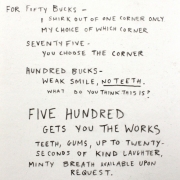 FOR FIFTY BUCKS -
I SMIRK OUT OF ONE CORNER ONLY
MY CHOICE OF WHICH CORNER
SEVENTY FIVE -
YOU CHOOSE THE CORNER
HUNDRED BUCKS -
WEAK SMILE, NO TEETH.
WHAT DO YOU THINK THIS IS?
FIVE HUNDRED
GETS YOU THE WORKS
TEETH, GUMS, UP TO TWENTY-
SECONDS OF KIND LAUGHTER,
MINTY BREATH AVAILABLE UPON
REQUEST.